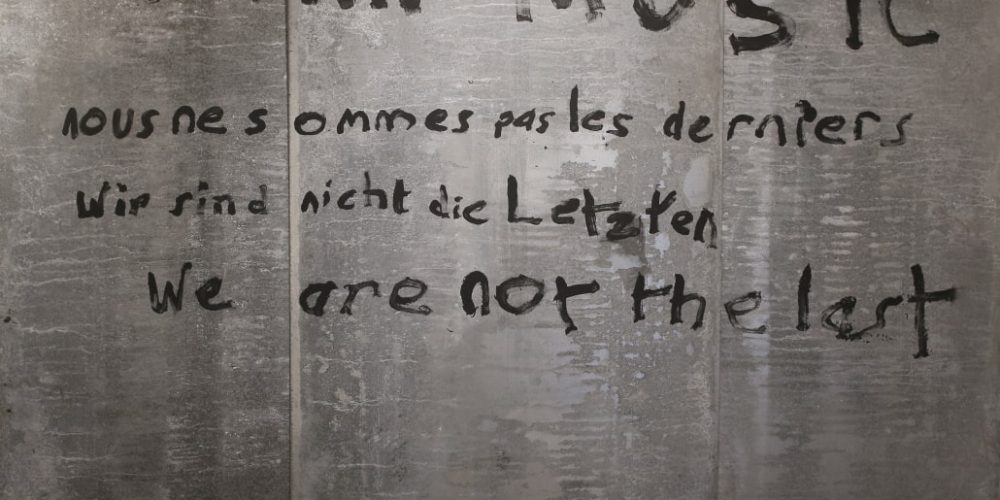 MUSIC
nous ne sommes pas les derniers
Wir sind nicht die Letzten
We are not the last